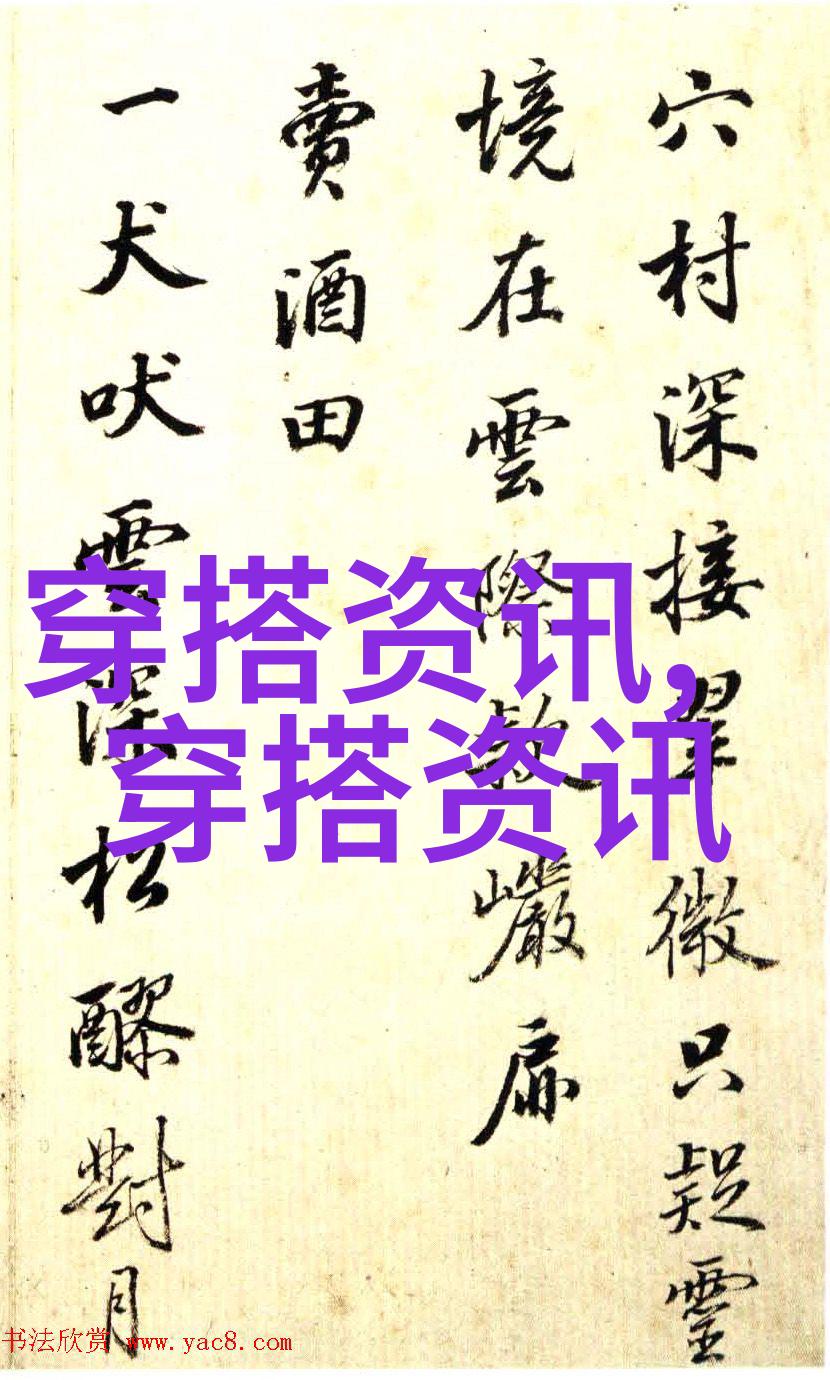 穴村深接翠微只疑靈
境在雲際欵巖扉
賣酒田
一犬吠雲深松醪對月
穿搭资讯,
穿搭资讯
书法欣赏 www.yac8.com